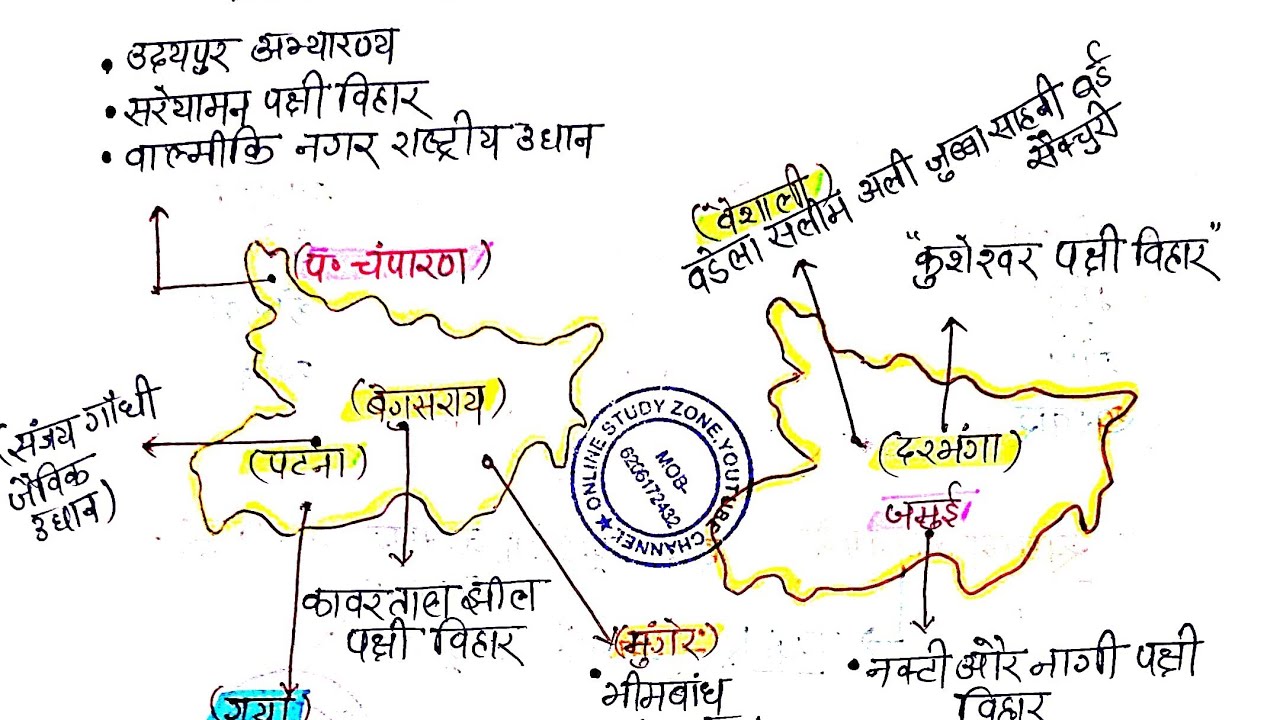 • उदयपुर अभ्यारण्य
• सरैयामन पक्षी विहार
• वाल्मीकि नगर राष्ट्रीय उधान
(प॰ चंपारण)
(वैशाली)
बडेला सलीम अली जुब्बा साहनी बर्ड
सैंक्चुरी
"कुशेश्वर पक्षी विहार"
(बेगुसराय)
(संजय गाँधी
जैविक
उधान)
(पटना)
(दरभंगा)
जमुई
★ ONLINE STUDY ZONE YOUTUBE CHANNEL
MOB-
6206172432
कावरताल झील
पक्षी विहार
(मुंगेर)
• भीमबांध
• नक्टी और नागी पक्षी
विहार
(गया)